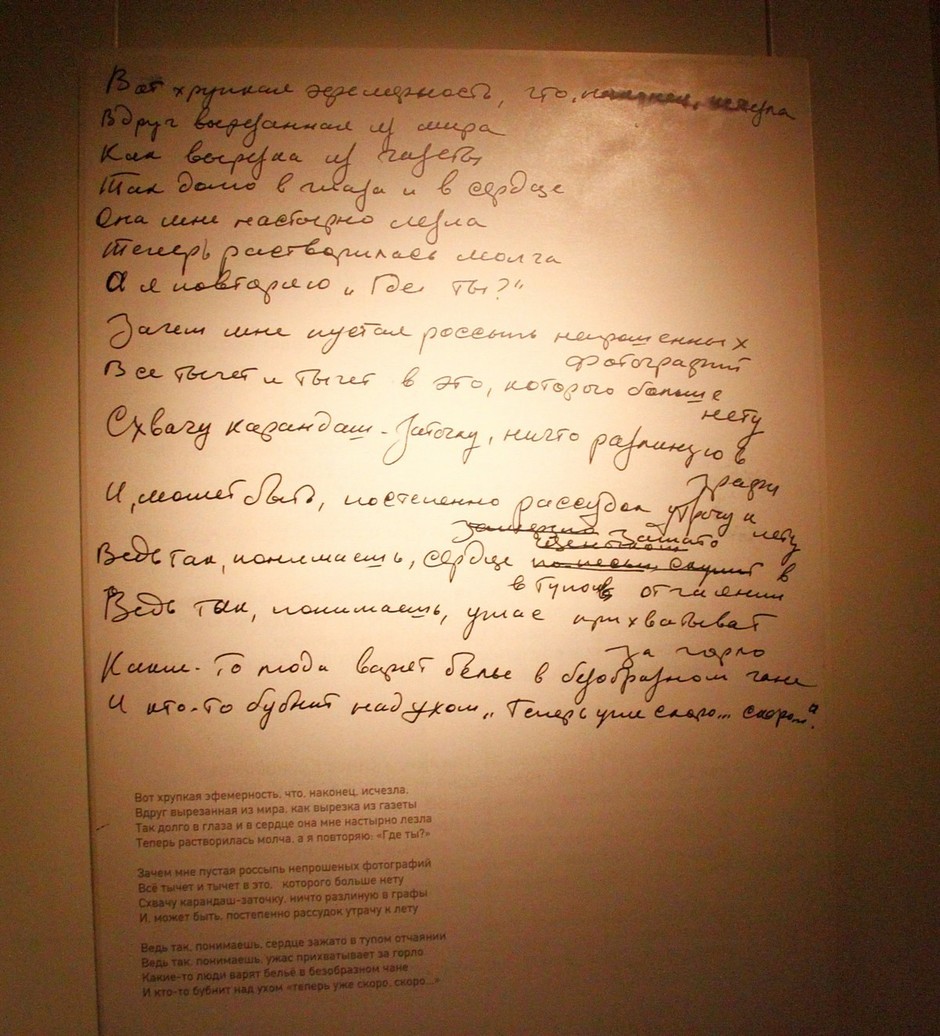 Вот хрупкая эфемерность, что, наконец, исчезла
Вдруг вырезанная из мира
Как вырезка из газеты
Так долго в глаза и в сердце
Она мне настырно лезла
Теперь растворилась молча
А я повторяю „Где ты?“
Зачем мне пустая россыпь непрошенных
фотографий
Все тычет и тычет в это, которого больше
нету
Схвачу карандаш-заточку, ничто разлиную в
графы
И, может быть, постепенно рассудок утрачу к
лету
зажато
Ведь так, понимаешь, сердце в
в тупом отчаянии
Ведь так, понимаешь, ужас прихватывает
за горло
Какие-то люди варят белье в безобразном чане
И кто-то бубнит над ухом „Теперь уже скоро... скоро...“
Вот хрупкая эфемерность, что, наконец, исчезла,
Вдруг вырезанная из мира, как вырезка из газеты
Так долго в глаза и в сердце она мне настырно лезла
Теперь растворилась молча, а я повторяю: «Где ты?»
Зачем мне пустая россыпь непрошеных фотографий
Всё тычет и тычет в это, которого больше нету
Схвачу карандаш-заточку, ничто разлиную в графы
И, может быть, постепенно рассудок утрачу к лету
Ведь так, понимаешь, сердце зажато в тупом отчаянии
Ведь так, понимаешь, ужас прихватывает за горло
Какие-то люди варят бельё в безобразном чане
И кто-то бубнит над ухом «теперь уже скоро, скоро...»